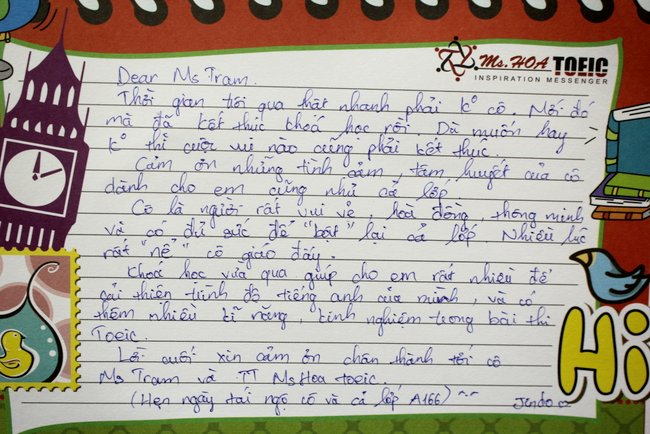 Ms. HOA TOEIC
INSPIRATION MESSENGER
Dear Ms Tram.
Thời gian trôi qua thật nhanh phải k° cô. Mới đó
mà đã kết thúc khoá học rồi. Dù muốn hay
k° thì cuộc vui nào cũng phải kết thúc.
Cảm ơn những tình cảm, tâm huyết của cô
dành cho em cũng như cả lớp.
Cô là người rất vui vẻ, hoà đồng, thông minh
và có đủ sức để "bật" lại cả lớp. Nhiều lúc
rất "nể" cô giáo đấy.
Khoá học vừa qua giúp cho em rất nhiều để
cải thiện trình độ tiếng anh của mình, và có
thêm nhiều kĩ năng, kinh nghiệm trong bài thi
Toeic.
Lời cuối xin cảm ơn chân thành tới cô
Ms Tram và TT Ms Hoa toeic.
(Hẹn ngày tái ngộ cô và cả lớp A166) ~~
Hi